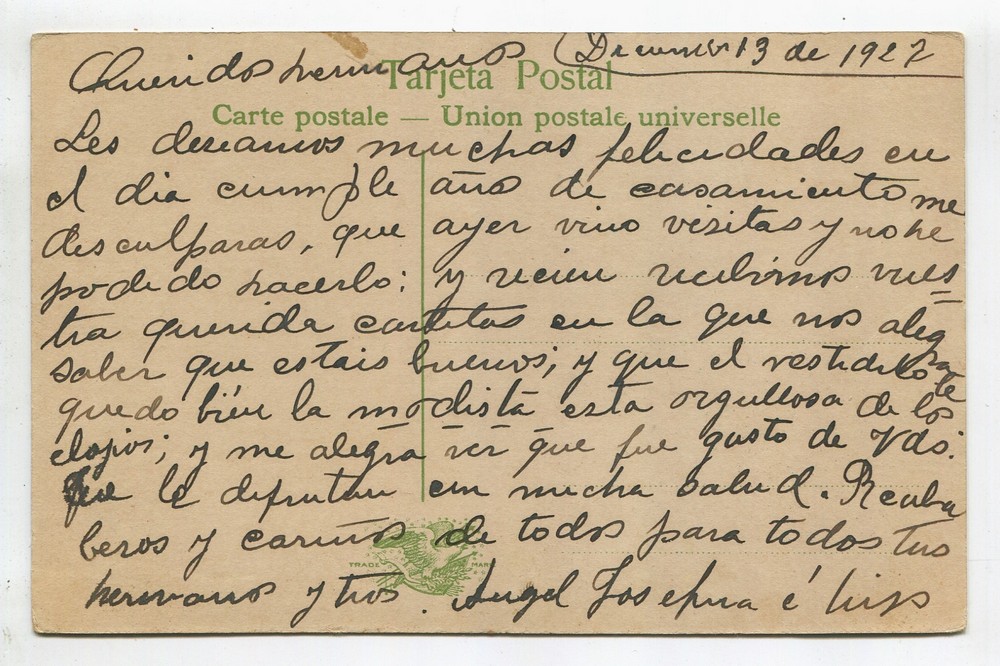 Queridos hermanos Diciembre 13 de 1927
Tarjeta Postal
Carte postale — Union postale universelle
Les deseamos muchas felicidades en
el dia cumple años de casamiento me
desculparas, que ayer vino visitas y no he
podido hacerlo; y recien recibimos vues
tra querida cartitas en la que nos alegra
saber que estais buenos; y que el vestidito te
quedo bién la modista esta orgullosa de los
elojios; y me alegra ver que fue gusto de Vds.
Que le disfrutan con mucha salud. Reciba
besos y cariños de todos para todos tus
TRADE MARK
hermanos y tios. Angel Josefina é hijos